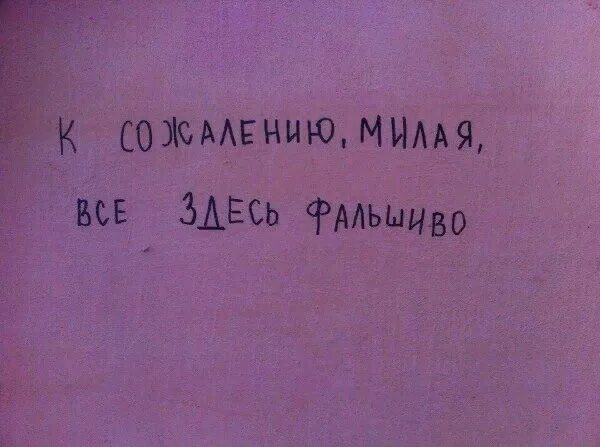 К СОЖАЛЕНИЮ, МИЛАЯ,
ВСЕ ЗДЕСЬ ФАЛЬШИВО